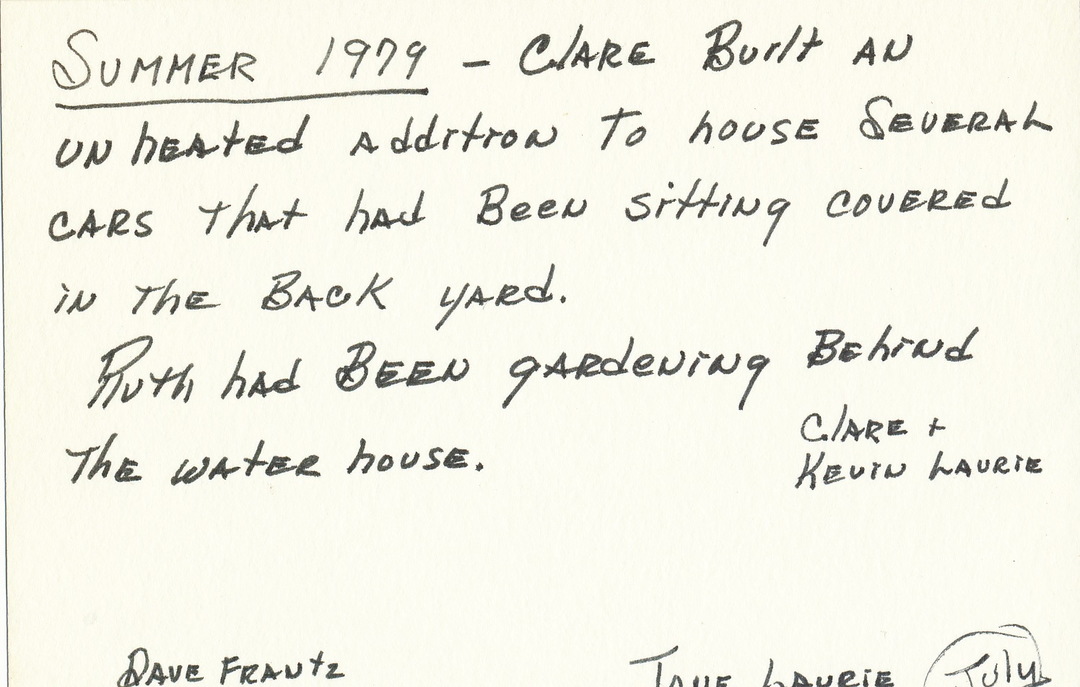 SUMMER 1979 – Clare Built AN
UNheated Addition To house Several
CARS That had Been sitting covered
in The Back yard.
Ruth had BEEN gardening Behind
The water house.
Clare +
Kevin Laurie
Dave Frantz
Laurie July